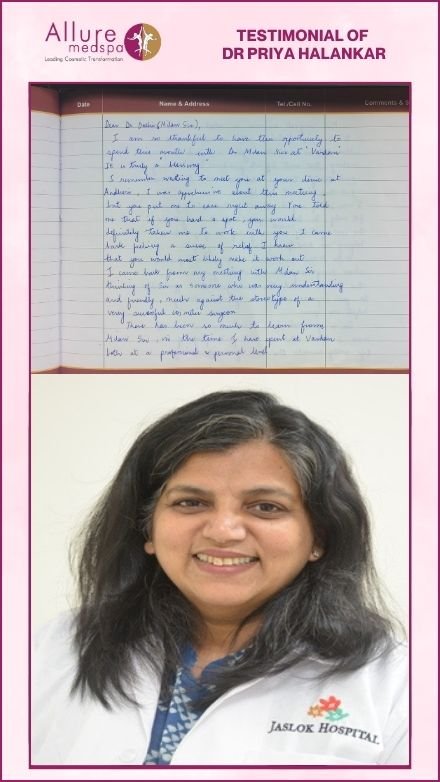 Allure
medspa
Leading Cosmetic Transformation
TESTIMONIAL OF
DR PRIYA HALANKAR
Date Name & Address Tel./Cell No. Comments & S
Dear Dr. Doshi (Milan Sir),
I am so thankful to have this opportunity to
spend this month with Dr Milan Sir at "Vardan"
It is truly a "blessing"
I remember waiting to meet you at your clinic at
Andheri. I was apprehensive about this meeting.
but you put me to ease right away. You told
me that if you had a spot, you would
definitely take me to work with you. I came
back feeling a sense of relief I knew
that you would most likely make it work out
I came back from my meeting with Milan Sir
thinking of Sir as someone who was very understanding
and friendly, much against the stereotype of a
very successful cosmetic surgeon
There has been so much to learn from
Milan Sir, in the time I have spent at Vardan
both at a professional & personal level
JASLOK HOSPITAL